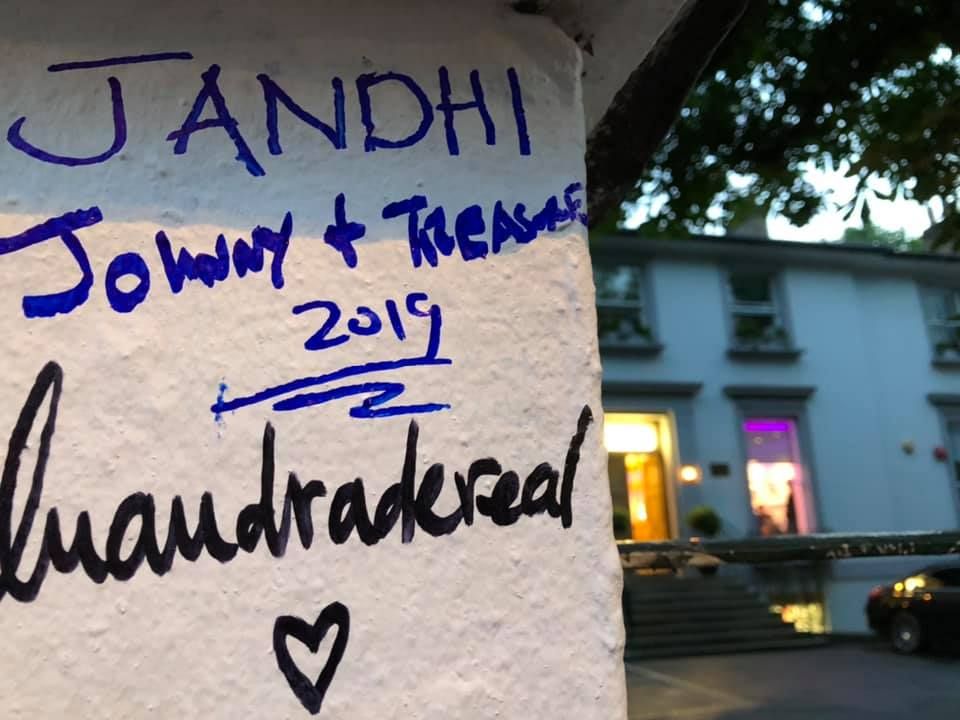 JANDHI
JOHNNY + TREASURE
2019
luandradereal